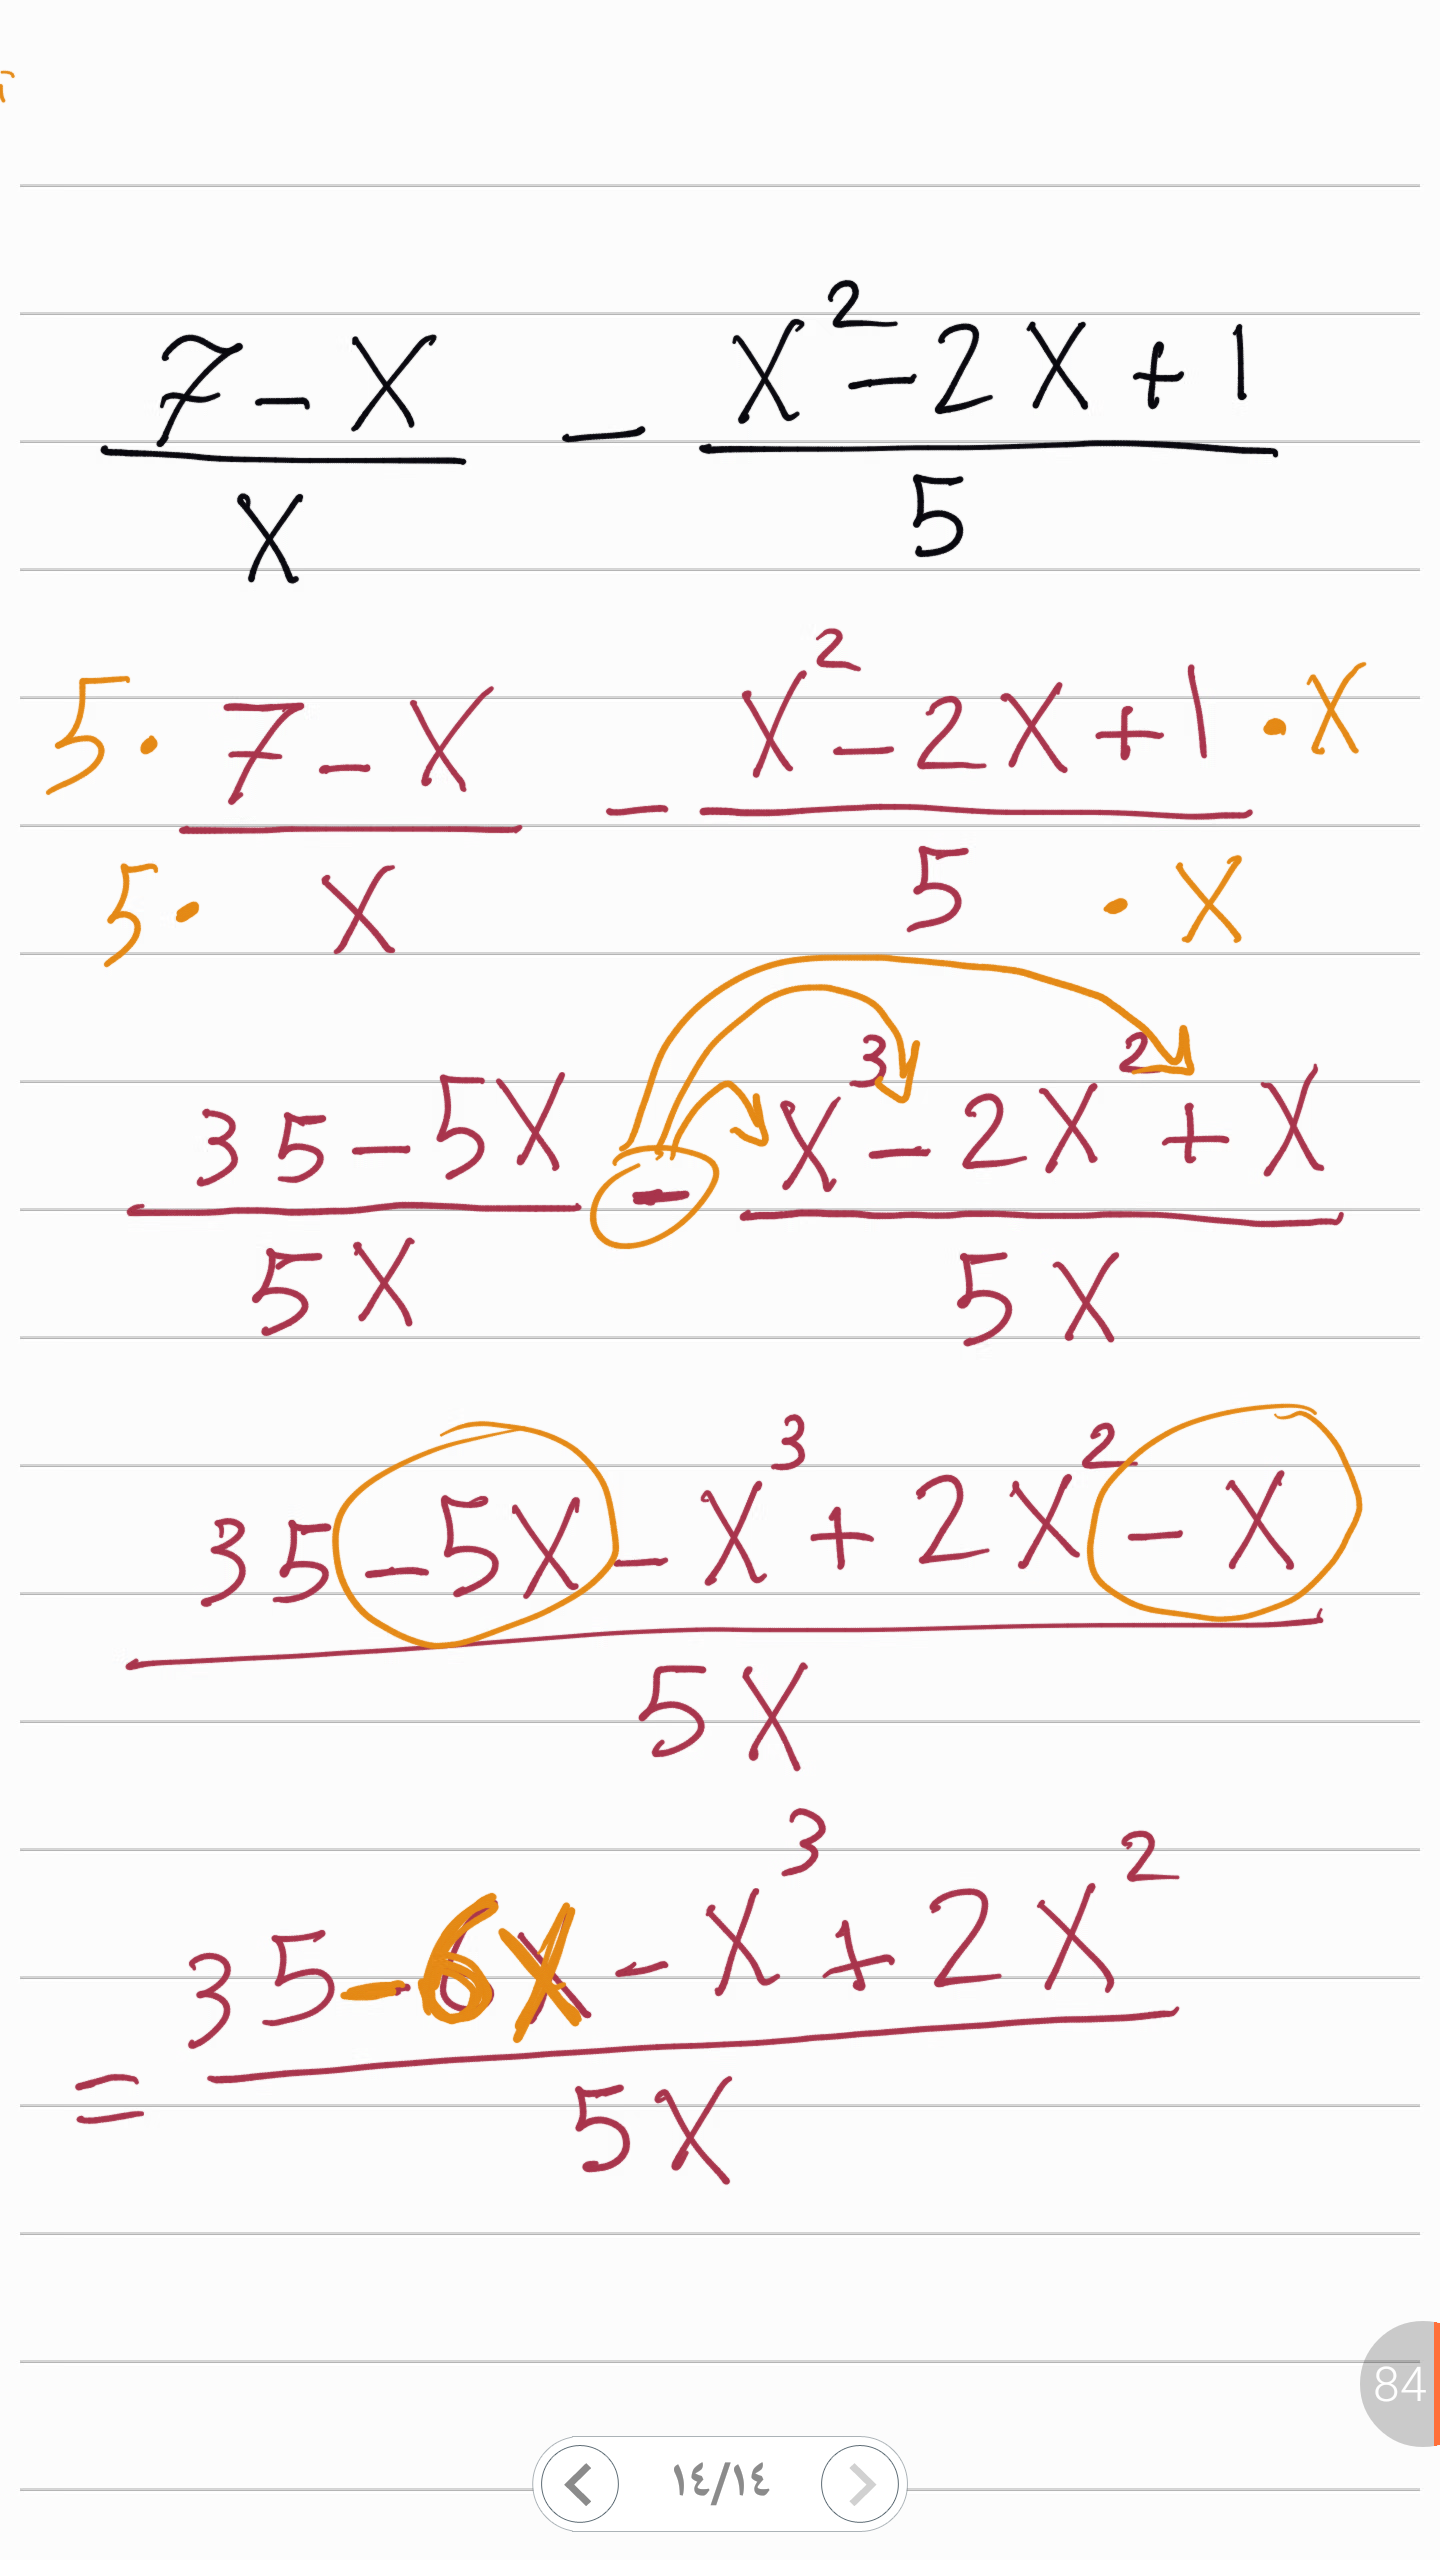 7 - X / X - X² - 2X + 1 / 5
5 · 7 - X / 5 · X - X² - 2X + 1 · X / 5 · X
35 - 5X / 5X - X³ - 2X² + X / 5X
35 - 5X - X³ + 2X² - X / 5X
= 35 - 6X - X³ + 2X² / 5X
84
١٤/١٤